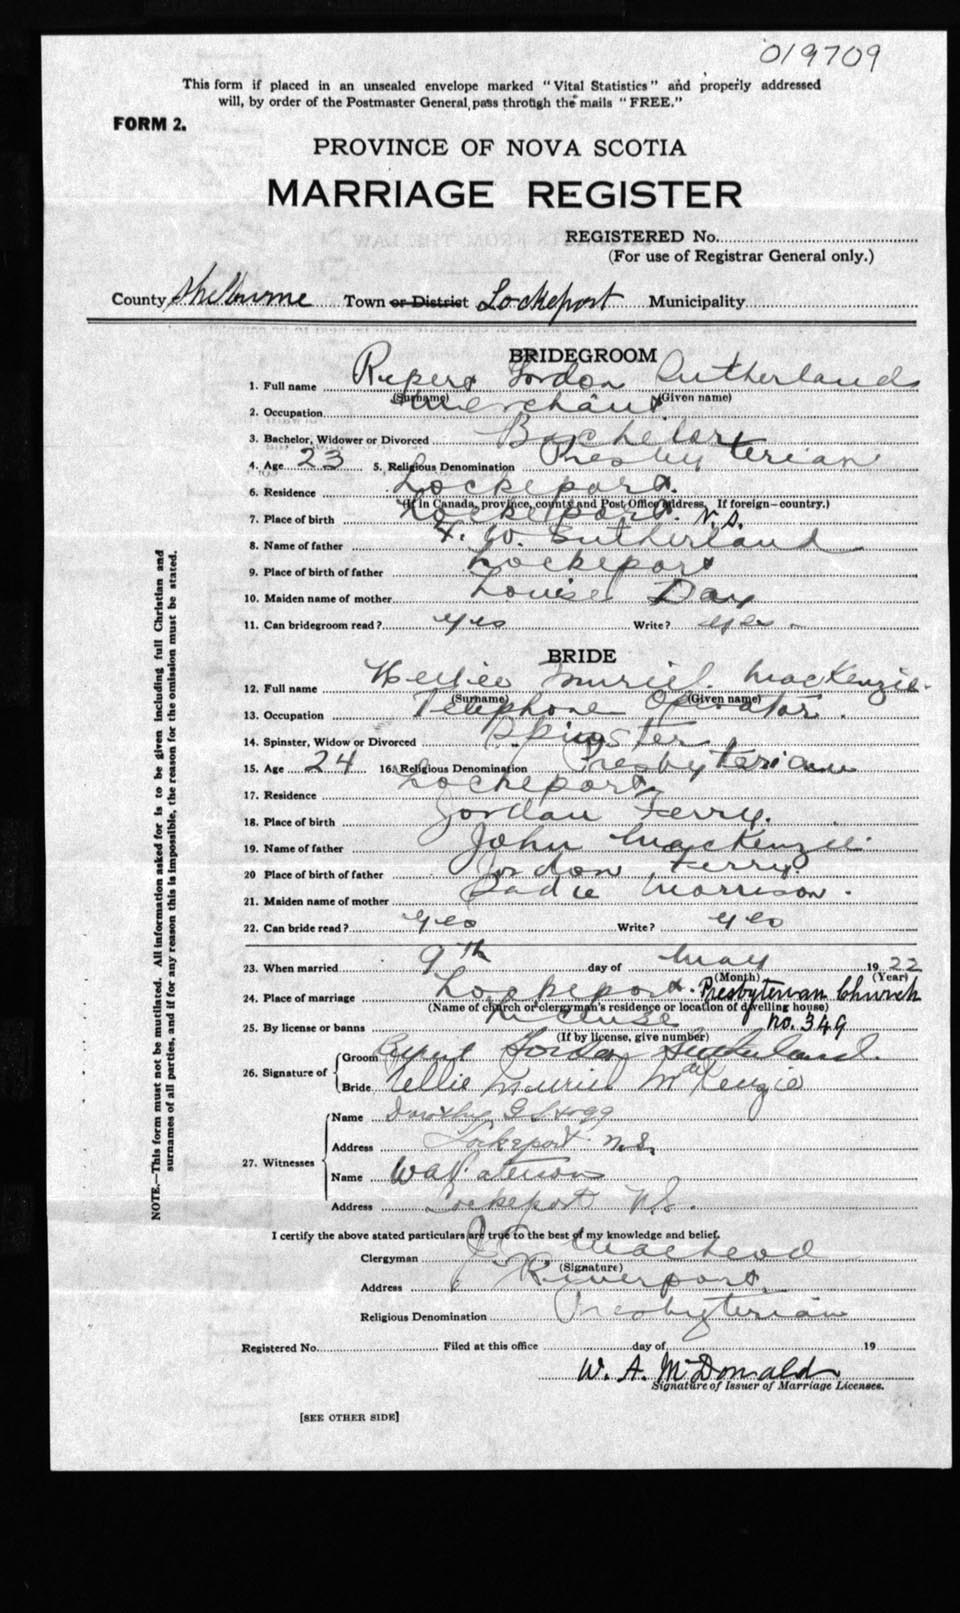 019709
This form if placed in an unsealed envelope marked "Vital Statistics" and properly addressed
will, by order of the Postmaster General, pass through the mails "FREE."
FORM 2.
PROVINCE OF NOVA SCOTIA
MARRIAGE REGISTER
REGISTERED No.
(For use of Registrar General only.)
County Shelburne Town or District Lockeport Municipality
BRIDEGROOM
1. Full name Rupert Gordon Sutherland
(Surname) (Given name)
2. Occupation Merchant
3. Bachelor, Widower or Divorced Bachelor
4. Age 23 5. Religious Denomination Presbyterian
6. Residence Lockeport.
(If in Canada, province, county and Post Office address. If foreign—country.)
7. Place of birth Lockeport. N.S.
8. Name of father W. Sutherland
9. Place of birth of father Lockeport
10. Maiden name of mother Louise Day
11. Can bridegroom read? yes Write? yes
BRIDE
12. Full name Nellie Muriel MacKenzie.
(Surname) (Given name)
13. Occupation Telephone Operator.
14. Spinster, Widow or Divorced Spinster
15. Age 24 16. Religious Denomination Presbyterian
17. Residence Lockeport
18. Place of birth Jordan Ferry.
19. Name of father John MacKenzie.
20 Place of birth of father Jordon Ferry.
21. Maiden name of mother Sadie Morrison.
22. Can bride read? yes Write? yes
23. When married 9th day of May 1922
(Month) (Year)
24. Place of marriage Lockeport. Presbyterian Church
(Name of church or clergyman's residence or location of dwelling house)
25. By license or banns License no. 349
(If by license, give number)
26. Signature of Groom Rupert Gordon Sutherland.
Bride Nellie Muriel MacKenzie
27. Witnesses Name Dorothy G
Address Lockeport N.S.
Name
Address Lockeport N.S.
I certify the above stated particulars are true to the best of my knowledge and belief.
Clergyman MacLeod
(Signature)
Address Riverport.
Religious Denomination Presbyterian
Registered No. Filed at this office day of 19
W. A. McDonald
Signature of Issuer of Marriage Licenses.
[SEE OTHER SIDE]
NOTE.—This form must not be mutilated. All information asked for is to be given including full Christian and
surnames of all parties, and if for any reason this is impossible, the reason for the omission must be stated.